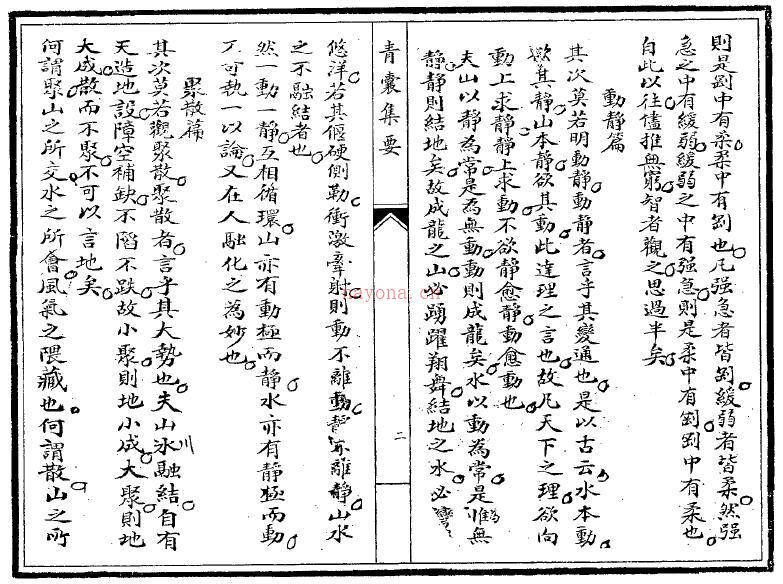 則是剛中有柔柔中有剛也凡强急者皆剛緩弱者皆柔然强
急之中有緩弱緩弱之中有强急則是柔中有剛剛中有柔也
自此以往儘推無窮智者觀之思過半矣
動靜篇
其次莫若明動靜動靜者言乎其變通也是以古云水本動
欲其靜山本靜欲其動此達理之言也故凡天下之理欲向
動上求靜靜上求動不欲靜愈靜動愈動也
夫山以靜為常是為無動動則成龍矣水以動為常是為無
靜靜則結地矣故成龍之山必踴躍翔舞結地之水必灣
青囊集要
二
悠洋若其偃硬側勒衝激牽射則動不離動靜不離靜山水
之不融結者也
然一動一靜互相循環山亦有動極而靜水亦有靜極而動
不可執一以論又在人融化之為妙也
聚散篇
其次莫若觀聚散聚散者言乎其大勢也夫山川融結自有
天造地設障空補缺不陷不跌故小聚則地小成大聚則地
大成散而不聚不可以言地矣
何謂聚山之所交水之所會風氣之隈藏也何謂散山之所
nayona.cn